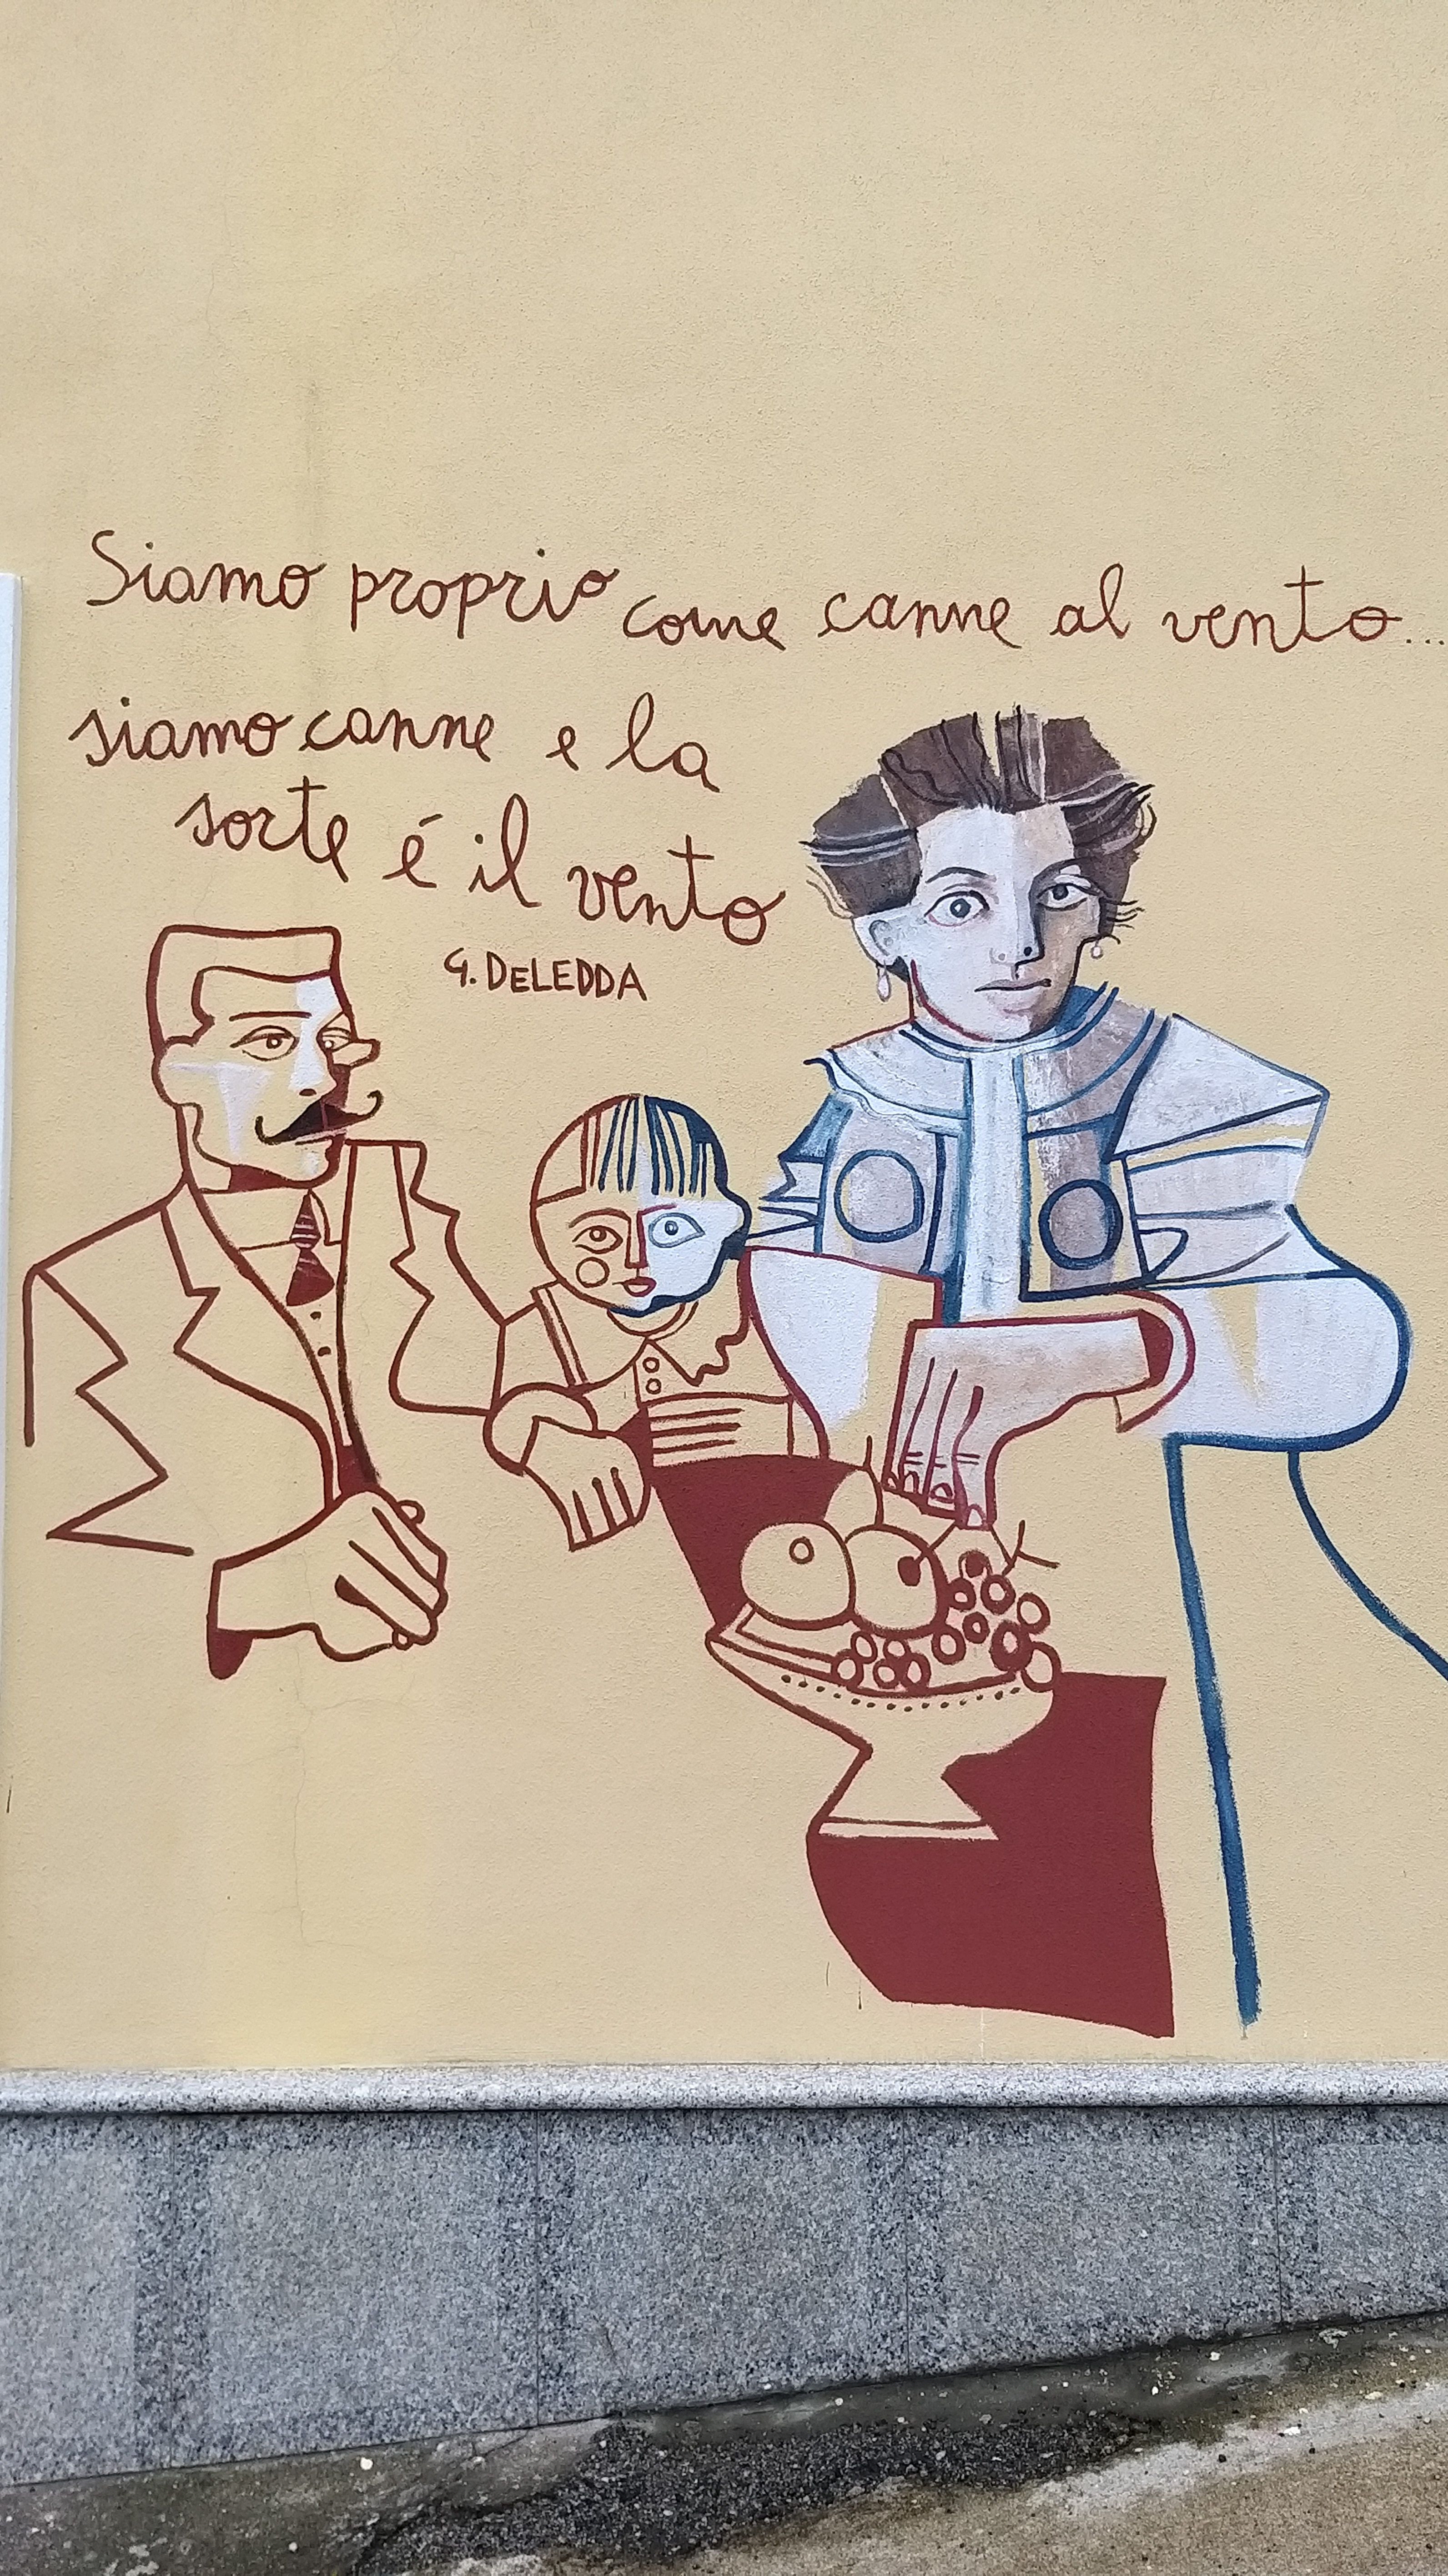 Siamo proprio come canne al vento...
siamo canne e la
sorte é il vento
G. DELEDDA